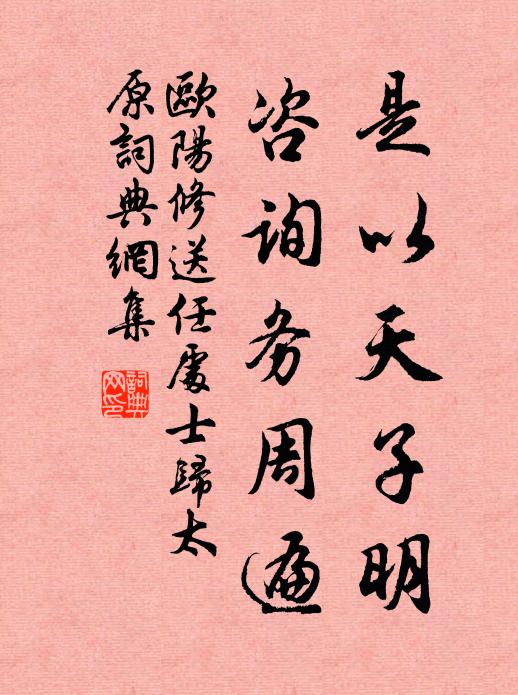 是以天子明
咨询务周遍
歐陽修送任處士歸太
原詞典網集
詞典
网印